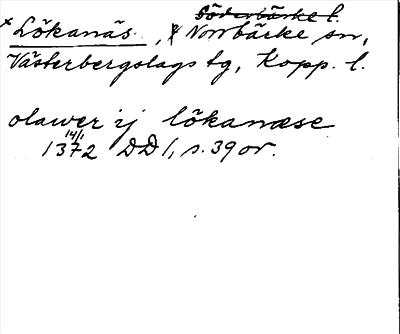 x Lökanäs, Norrbärke sn,
Västerbergslags tg, Kopp. l.
olawer ij lökanæse
14/1
1372 DD 1, s. 39 or.